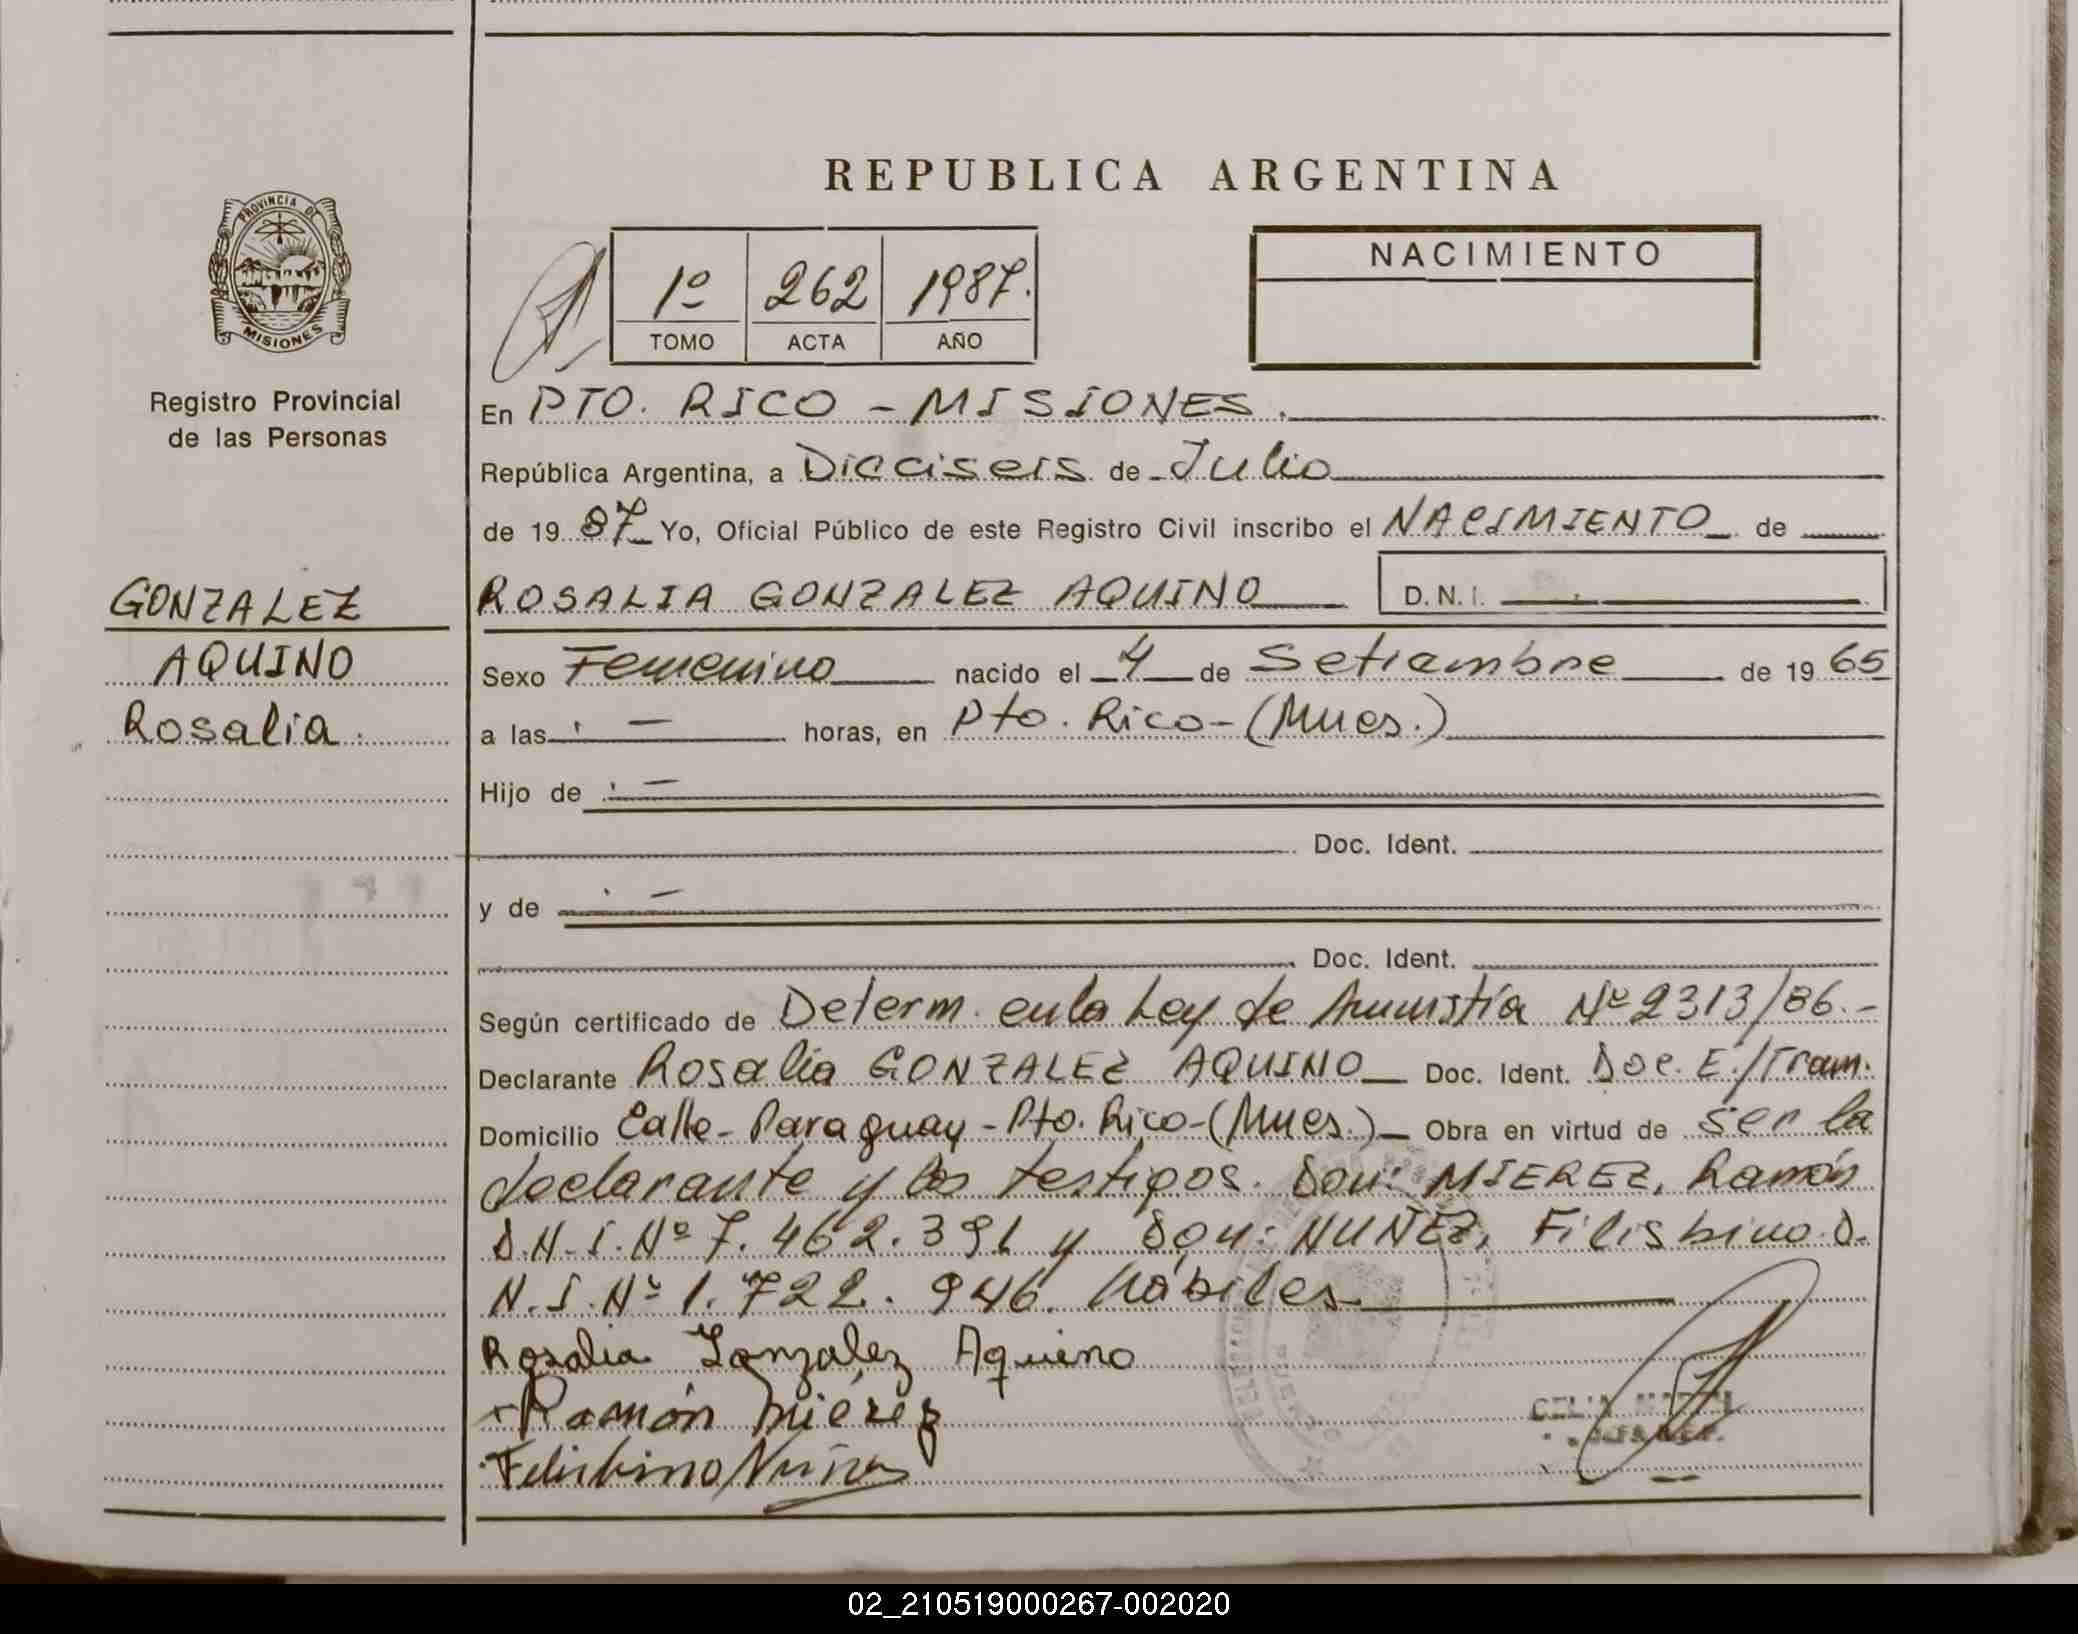 REPUBLICA ARGENTINA
PROVINCIA DE
MISIONES
Registro Provincial
de las Personas
1º 262 1987.
TOMO ACTA AÑO
NACIMIENTO
En PTO. RICO - MISIONES.
República Argentina, a Dieciseis de Julio
de 19 87 Yo, Oficial Público de este Registro Civil inscribo el NACIMIENTO de
GONZALEZ
AQUINO
Rosalia.
ROSALIA GONZALEZ AQUINO D.N.I.
Sexo Femenino nacido el 4 de Setiembre de 19 65
a las . - horas, en Pto. Rico - (Mnes.)
Hijo de . -
Doc. Ident.
y de . -
Doc. Ident.
Según certificado de Determ. en la Ley de Amnistía Nº 2313/86.-
Declarante Rosalia GONZALEZ AQUINO Doc. Ident. Doc. E./Tram.
Domicilio Calle - Paraguay - Pto. Rico - (Mnes.) Obra en virtud de ser la
declarante y los testigos. Don: MIEREZ, Ramón
D.N.I. Nº 7.462.391 y Don: NUÑEZ, Filisbino. D.
N.I. Nº 1.722.946. hábiles.
Rosalia Gonzalez Aquino
Ramón Miérez
Felisbino Nuñez
02_210519000267-002020